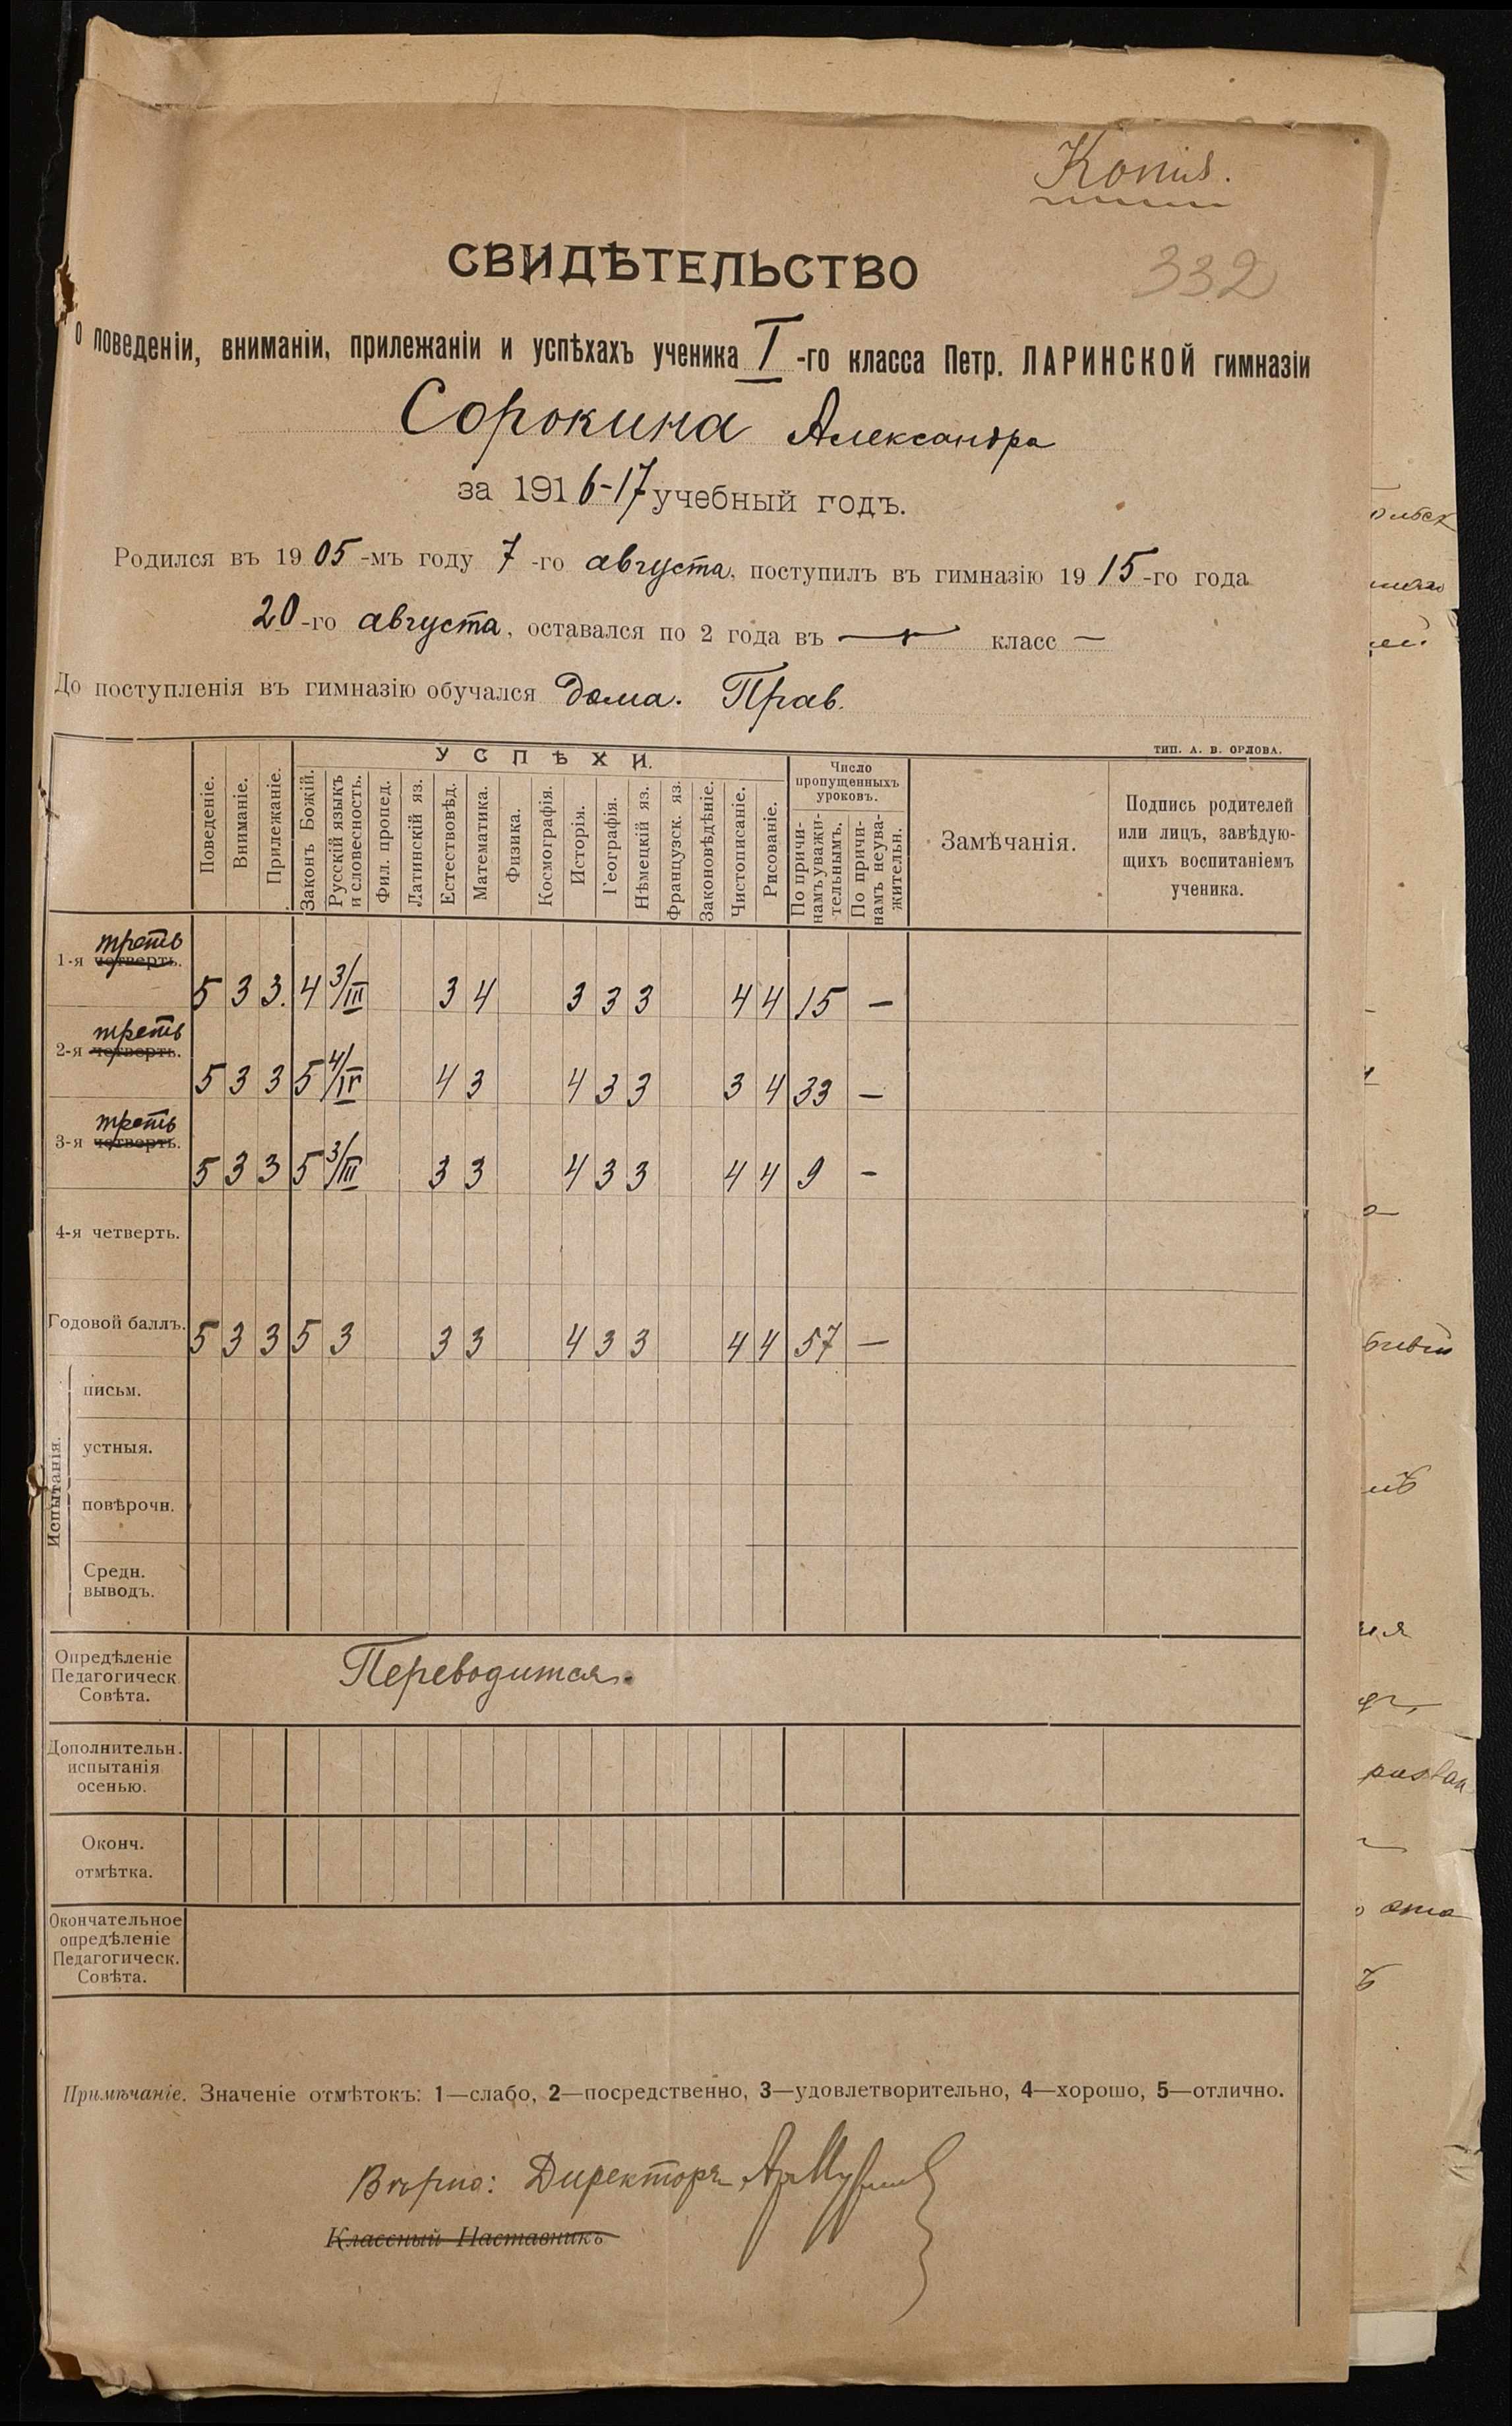 Копія.
332
СВИДѢТЕЛЬСТВО
о поведеніи, вниманіи, прилежаніи и успѣхахъ ученика I-го класса Петр. ЛАРИНСКОЙ гимназіи
Сорокина Александра
за 1916-17 учебный годъ.
Родился въ 1905-мъ году 7-го августа, поступилъ въ гимназію 1915-го года
20-го августа, оставался по 2 года въ — класс —
До поступленія въ гимназію обучался дома. Прав.
тип. А. В. ОРЛОВА.
Поведеніе. Вниманіе. Прилежаніе. УСПѢХИ. Законъ Божій. Русскій языкъ и словесность. Фил. пропед. Латинскій яз. Естествовѣд. Математика. Физика. Космографія. Исторія. Географія. Нѣмецкій яз. Французск. яз. Законовѣдѣніе. Чистописаніе. Рисованіе. Число пропущенныхъ уроковъ. По причинамъ уважительнымъ. По причинамъ неуважительн. Замѣчанія. Подпись родителей или лицъ, завѣдующихъ воспитаніемъ ученика.
треть
1-я четверть. 5 3 3. 4 3/III 3 4 3 3 3 4 4 15 —
треть
2-я четверть. 5 3 3 5 4/IV 4 3 4 3 3 3 4 33 —
треть
3-я четверть. 5 3 3 5 3/III 3 3 4 3 3 4 4 9 —
4-я четверть.
Годовой баллъ. 5 3 3 5 3 3 3 4 3 3 4 4 57 —
Испытанія.
письм.
устныя.
повѣрочн.
Средн.
выводъ.
Опредѣленіе
Педагогическ.
Совѣта.
Переводится.
Дополнительн.
испытанія
осенью.
Оконч.
отмѣтка.
Окончательное
опредѣленіе
Педагогическ.
Совѣта.
Примѣчаніе. Значеніе отмѣтокъ: 1—слабо, 2—посредственно, 3—удовлетворительно, 4—хорошо, 5—отлично.
Вѣрно: Директоръ
Классный Наставникъ